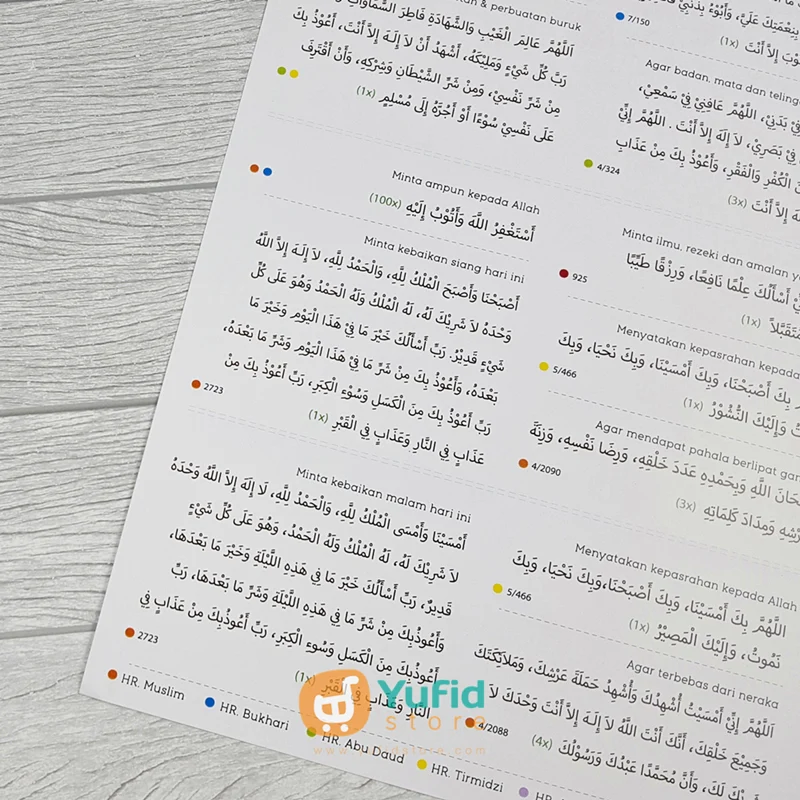 kan & perbuatan buruk
اَللَّهُمَّ عَالِمَ الْغَيْبِ وَالشَّهَادَةِ فَاطِرَ السَّمَاوَاتِ
رَبَّ كُلِّ شَيْءٍ وَمَلِيْكَهُ، أَشْهَدُ أَنْ لاَ إِلَـهَ إِلاَّ أَنْتَ، أَعُوْذُ بِكَ
مِنْ شَرِّ نَفْسِيْ، وَمِنْ شَرِّ الشَّيْطَانِ وَشِرْكِهِ، وَأَنْ أَقْتَرِفَ
عَلَى نَفْسِيْ سُوْءًا أَوْ أَجُرَّهُ إِلَى مُسْلِمٍ (1x)
Minta ampun kepada Allah
أَسْتَغْفِرُ اللَّهَ وَأَتُوْبُ إِلَيْهِ (100x)
Minta kebaikan siang hari ini
أَصْبَحْنَا وَأَصْبَحَ الْمُلْكُ لِلَّهِ، وَالْحَمْدُ لِلَّهِ، لاَ إِلَـهَ إِلاَّ اللَّهُ
وَحْدَهُ لاَ شَرِيْكَ لَهُ، لَهُ الْمُلْكُ وَلَهُ الْحَمْدُ وَهُوَ عَلَى كُلِّ
شَيْءٍ قَدِيْرٌ. رَبِّ أَسْأَلُكَ خَيْرَ مَا فِيْ هَذَا الْيَوْمِ وَخَيْرَ مَا
بَعْدَهُ، وَأَعُوْذُ بِكَ مِنْ شَرِّ مَا فِيْ هَذَا الْيَوْمِ وَشَرِّ مَا بَعْدَهُ،
رَبِّ أَعُوْذُ بِكَ مِنَ الْكَسَلِ وَسُوْءِ الْكِبَرِ، رَبِّ أَعُوْذُ بِكَ مِنْ
عَذَابٍ فِي النَّارِ وَعَذَابٍ فِي الْقَبْرِ (1x)
2723
Minta kebaikan malam hari ini
أَمْسَيْنَا وَأَمْسَى الْمُلْكُ لِلَّهِ، وَالْحَمْدُ لِلَّهِ، لَا إِلَهَ إِلاَّ اللَّهُ وَحْدَهُ
لاَ شَرِيْكَ لَهُ، لَهُ الْمُلْكُ وَلَهُ الْحَمْدُ، وَهُوَ عَلَى كُلِّ شَيْءٍ
قَدِيْرٌ، رَبِّ أَسْأَلُكَ خَيْرَ مَا فِي هَذِهِ اللَّيْلَةِ وَخَيْرَ مَا بَعْدَهَا،
وَأَعُوْذُبِكَ مِنْ شَرِّ مَا فِي هَذِهِ اللَّيْلَةِ وَشَرِّ مَا بَعْدَهَا، رَبِّ
أَعُوْذُبِكَ مِنَ الْكَسَلِ وَسُوءِ الْكِبَرِ، رَبِّ أَعُوْذُبِكَ مِنْ عَذَابٍ فِي
النَّارِ وَعَذَابٍ فِي الْقَبْرِ (1x)
2723
7/150
(1x)
Agar badan, mata dan teling
فِيْ بَدَنِيْ، اَللَّهُمَّ عَافِنِيْ فِيْ سَمْعِيْ،
فِيْ بَصَرِيْ، لاَ إِلَهَ إِلاَّ أَنْتَ . اَللَّهُمَّ إِنِّيْ
الْكُفْرِ وَالْفَقْرِ، وَأَعُوْذُ بِكَ مِنْ عَذَابِ
إِلاَّ أَنْتَ (3x)
4/324
Minta ilmu, rezeki dan amalan
أَسْأَلُكَ عِلْمًا نَافِعًا، وَرِزْقًا طَيِّبًا
مُتَقَبَّلاً (1x)
925
Menyatakan kepasrahan kepada
بِكَ أَصْبَحْنَا، وَبِكَ أَمْسَيْنَا، وَبِكَ نَحْيَا، وَبِكَ
وَإِلَيْكَ النُّشُوْرُ (1x)
5/466
Agar mendapat pahala berlipat gan
اللَّهِ وَبِحَمْدِهِ عَدَدَ خَلْقِهِ، وَرِضَا نَفْسِهِ، وَزِنَةَ
وَمِدَادَ كَلِمَاتِهِ (3x)
4/2090
Menyatakan kepasrahan kepada Allah
اَللَّهُمَّ بِكَ أَمْسَيْنَا، وَبِكَ أَصْبَحْنَا،وَبِكَ نَحْيَا، وَبِكَ
نَمُوْتُ، وَإِلَيْكَ الْمَصِيْرُ (1x)
5/466
Agar terbebas dari neraka
اَللَّهُمَّ إِنِّيْ أَمْسَيْتُ أُشْهِدُكَ وَأُشْهِدُ حَمَلَةَ عَرْشِكَ، وَمَلاَئِكَتَكَ
وَجَمِيْعَ خَلْقِكَ، أَنَّكَ أَنْتَ اللَّهُ لاَ إِلَـهَ إِلاَّ أَنْتَ وَحْدَكَ لاَ
لَكَ، وَأَنَّ مُحَمَّدًا عَبْدُكَ وَرَسُوْلُكَ (4x)
4/2088
HR. Muslim
HR. Bukhari
HR. Abu Daud
HR. Tirmidzi
Yufid
store